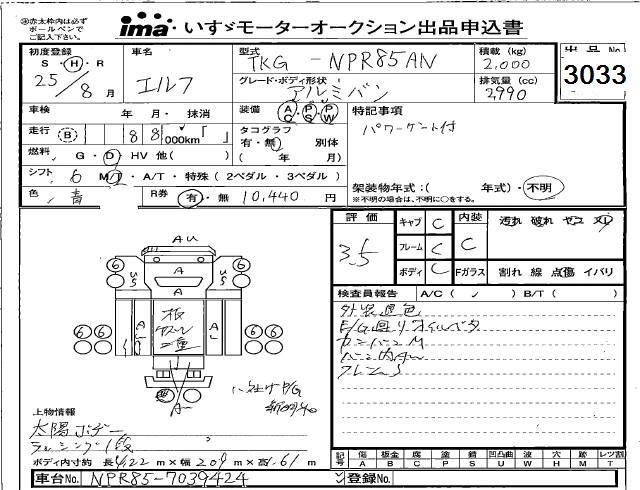 ㊟赤太枠内は必ず
ボールペンで
ご記入下さい。
ima いすゞモーターオークション出品申込書
初度登録 車名 型式 積載 (kg) 出品No
S・H・R エルフ TKG - NPR85AN 2.000 3033
25/8月 グレード・ボディ形状 排気量 (cc)
アルミバン 2990
車検 年 月・抹消 装備 AC・PS・PW 特記事項
走行 B 88 000km「 」 タコグラフ パワーゲート付
有・無 別体
燃料 G・D・HV 他( ) ( 年 月)
シフト 6 MT・A/T・特殊(2ペダル・3ペダル) 架装物年式:( 年式)・不明
色 青 R券 有・無 10,440 円 ※不明の場合は、不明に○をする。
評価 キャブ C 内装 汚れ 破れ ヤコ スレ
3.5 フレーム C C
ボディ C Fガラス 割れ 線 点傷 イバリ
検査員報告 A/C ( ) B/T ( )
外装退色
E/G廻りオイルベタ
カンバンM
フレームS
AU
A
A
6 6
US US
板
二重
A
6 6 6 6
上物情報
太陽ボデー
ラッシング1段
ボディ内寸約 長4.22 m×幅2.09 m×高1.61 m
記号 傷 板金 腐 塗 錆 凹凸曲 割 穴 跡 レツ割
A B C P S U W H M T
車台No. NPR85-7039424 登録No.